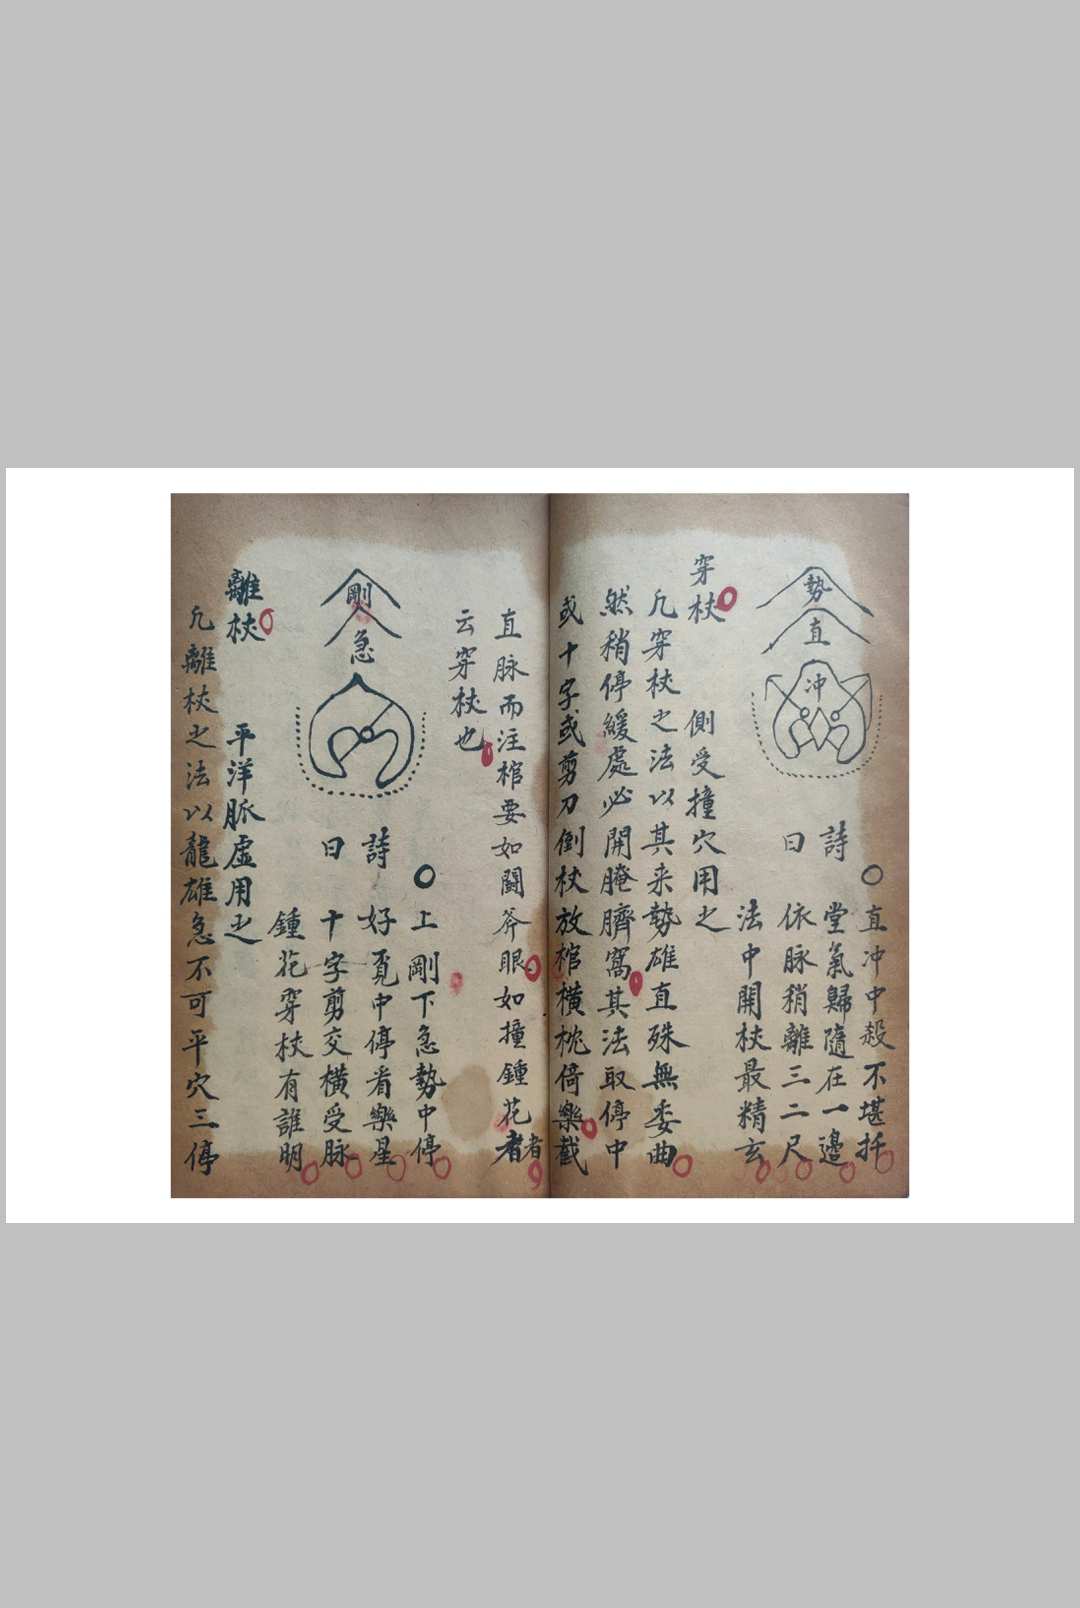 勢
直
冲
詩
曰
○直冲中殺不堪扦
堂氣歸隨在一邊
依脉稍離三二尺
法中開杖最精玄
穿杖　側受撞穴用之
凢穿杖之法以其来勢雄直殊無委曲
然稍停緩處必開腌臍窩其法取停中
或十字或剪刀倒杖放棺橫枕倚樂截
直脉而注棺要如鬪斧眼如撞鍾花者
者
云穿杖也
剛
急
詩
曰
○上剛下急勢中停
好覔中停看樂星
十字剪交橫受脉
鍾花穿杖有誰明
離杖　平洋脈虛用之
凢離杖之法以龍雄急不可平穴三停